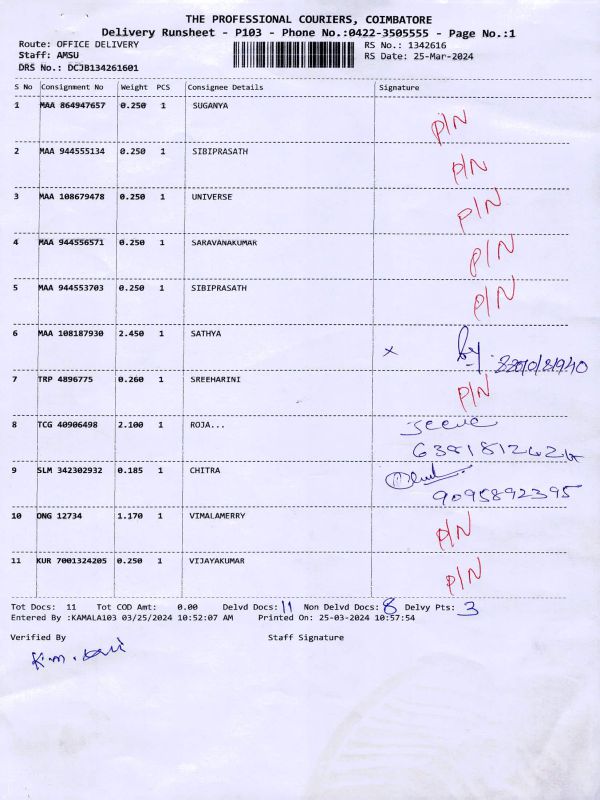 THE PROFESSIONAL COURIERS, COIMBATORE
Delivery Runsheet - P103 - Phone No.:0422-3505555 - Page No.:1
Route: OFFICE DELIVERY RS No.: 1342616
Staff: AMSU RS Date: 25-Mar-2024
DRS No.: DCJB134261601
S No Consignment No Weight PCS Consignee Details Signature
1 MAA 864947657 0.250 1 SUGANYA P/N
2 MAA 944555134 0.250 1 SIBIPRASATH P/N
3 MAA 108679478 0.250 1 UNIVERSE P/N
4 MAA 944556571 0.250 1 SARAVANAKUMAR P/N
5 MAA 944553703 0.250 1 SIBIPRASATH P/N
6 MAA 108187930 2.450 1 SATHYA x
7 TRP 4896775 0.260 1 SREEHARINI P/N
8 TCG 40906498 2.100 1 ROJA...
6381812424
9 SLM 342302932 0.185 1 CHITRA
9095892395
10 ONG 12734 1.170 1 VIMALAMERRY P/N
11 KUR 7001324205 0.250 1 VIJAYAKUMAR P/N
Tot Docs: 11 Tot COD Amt: 0.00 Delvd Docs: 11 Non Delvd Docs: 8 Delvy Pts: 3
Entered By :KAMALA103 03/25/2024 10:52:07 AM Printed On: 25-03-2024 10:57:54
Verified By Staff Signature